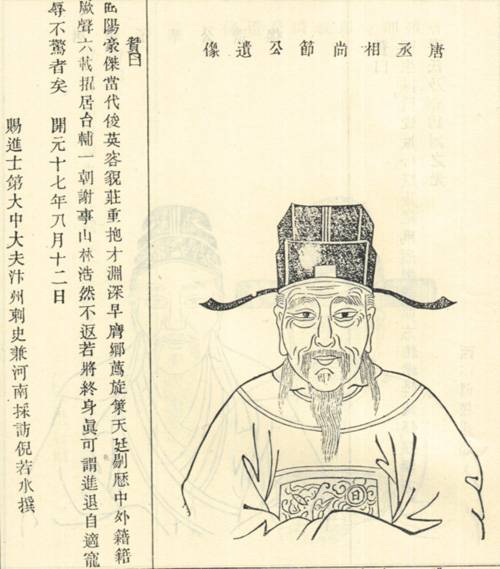 唐丞相尚節公遺像
贊曰
陽豪傑當代俊英容貌莊重抱才淵深早膺鄉薦旋策天廷剔歷中外藉籍
厥聲六載擢居台輔一朝謝事山林浩然不返若將終身眞可謂進退自適寵
辱不驚者矣　開元十七年八月十二日
賜進士第大中大夫汴州刺史兼河南採訪倪若水撰
日